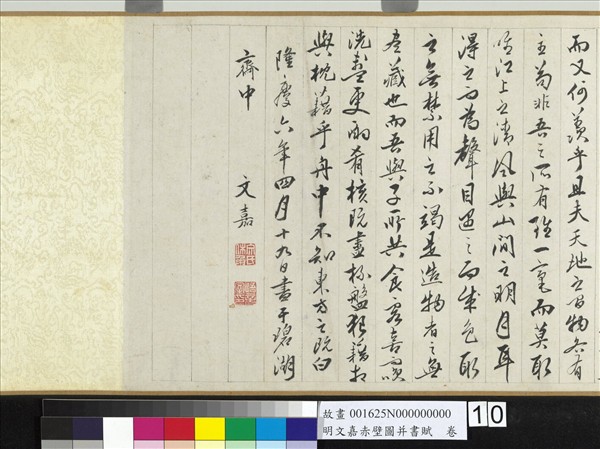 而又何羨乎且夫天地之間物各有
主苟非吾之所有雖一毫而莫取
惟江上之清風與山間之明月耳
得之而為聲目遇之而成色取
之無禁用之不竭是造物者之無
盡藏也而吾與子所共食客喜而笑
洗盞更酌肴核既盡杯盤狼藉相
與枕藉乎舟中不知東方之既白
隆慶六年四月十九日畫于碧湖
齋中 文嘉
故畫 001625N000000000
明文嘉赤壁圖并書賦 卷
10